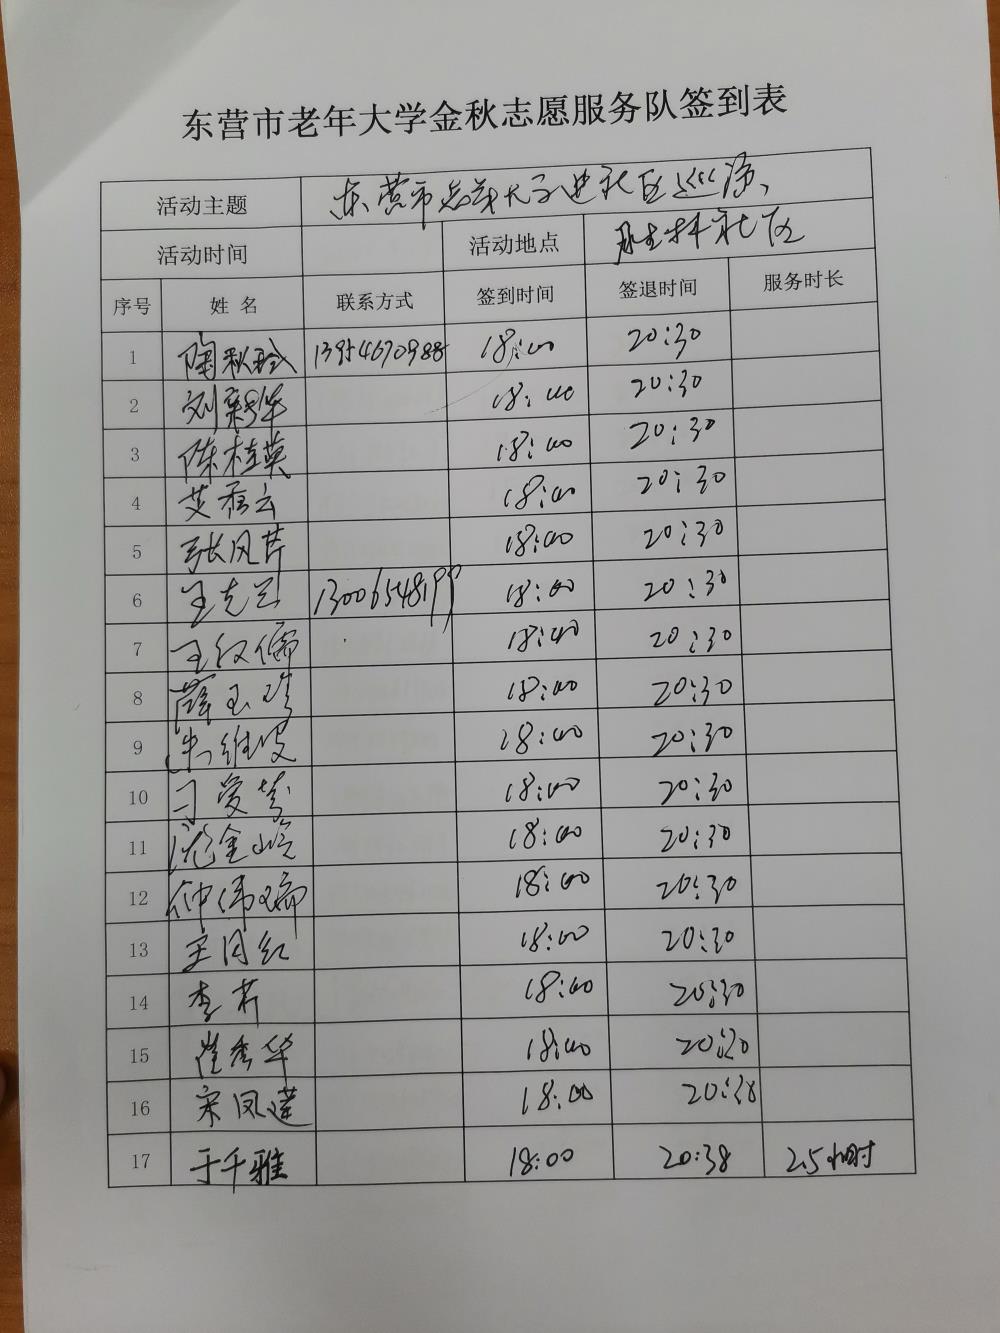 东营市老年大学金秋志愿服务队签到表
活动主题 东营市老年大学进社区巡演
活动时间 活动地点 胜林社区
序号 姓名 联系方式 签到时间 签退时间 服务时长
1 陶秋玲 13954670988 18:00 20:30
2 刘翠华 18:00 20:30
3 陈桂英 18:00 20:30
4 艾秀云 18:00 20:30
5 张风芹 18:00 20:30
6 王克兰 13006548199 18:00 20:30
7 18:00 20:30
8 薛玉 18:00 20:30
9 朱维 18:00 20:30
10 刁爱 18:00 20:30
11 18:00 20:30
12 仲伟 18:00 20:30
13 王月红 18:00 20:30
14 李 18:00 20:30
15 崔秀华 18:00 20:30
16 宋凤莲 18:00 20:30
17 于千雅 18:00 20:38 2.5小时